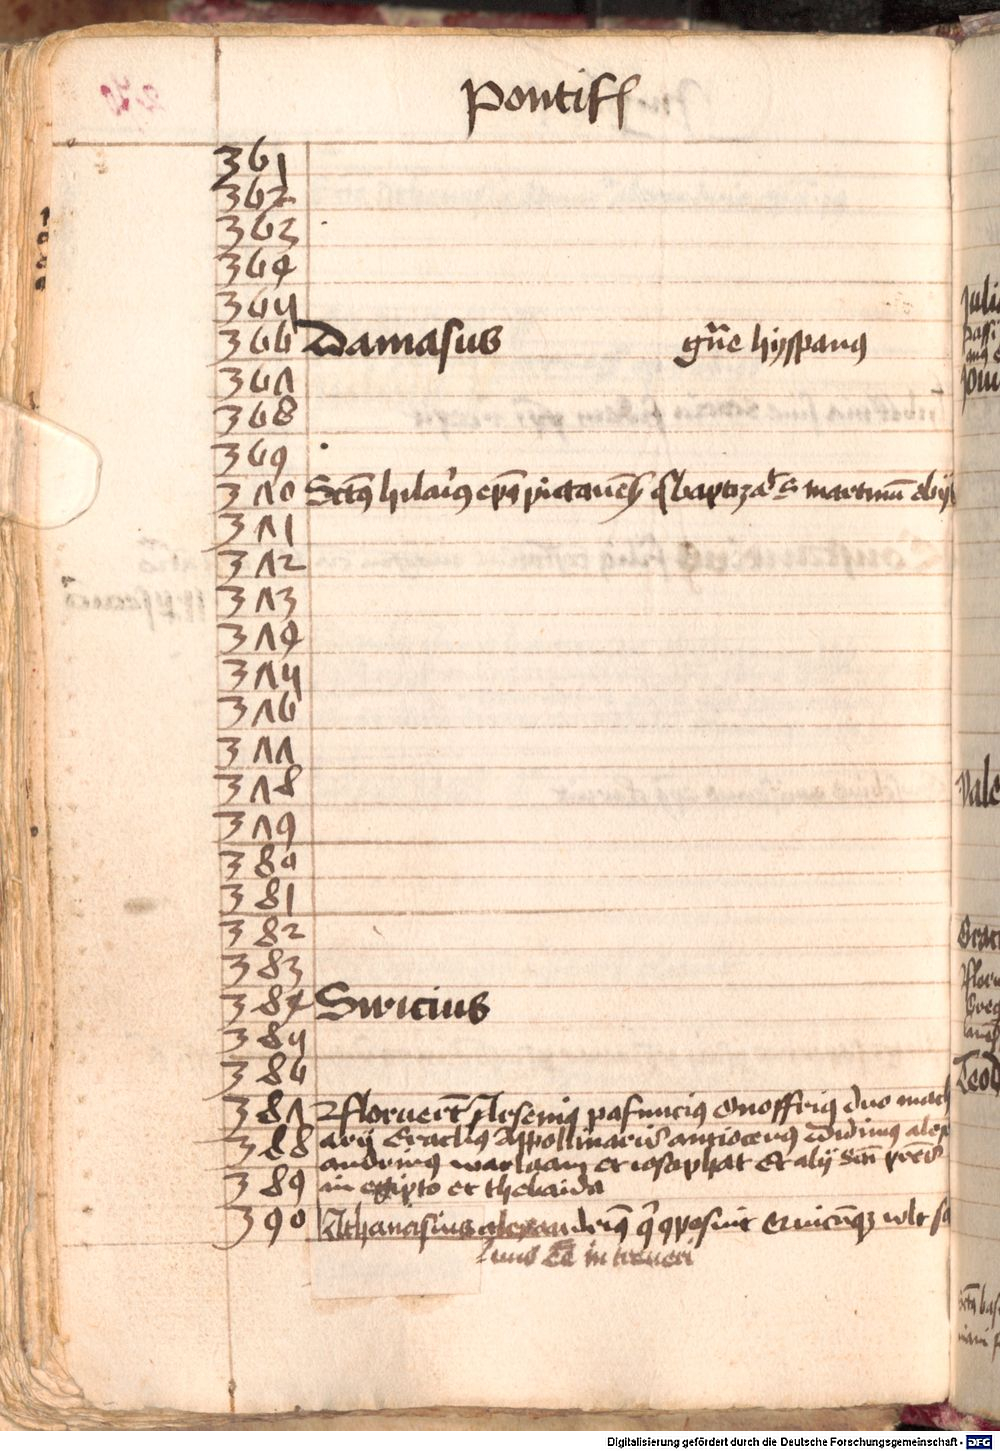 Pontiff
361
362
363
364
365
366 Damasus gñe hyspanus
367
368
369
370 Sctūs hilarius eps pictaueñ q baptizat S martinū obijt
371
372
373
374
375
376
377
378
379
380
381
382
383
384 Siricius
385
386
387 floruert Arsenius pafuncius Onoffrius duo mach
388 arij Eraclius Appollinaris antiocenus Didimus alex
andrinus warlaam et iosaphat Et alij Sci
389 in egipto et thebaida
390 Athanasius alexandrinus q9posuit Quicūq3 vlt sa
luus eē in treueri
Digitalisierung gefördert durch die Deutsche Forschungsgemeinschaft - DFG